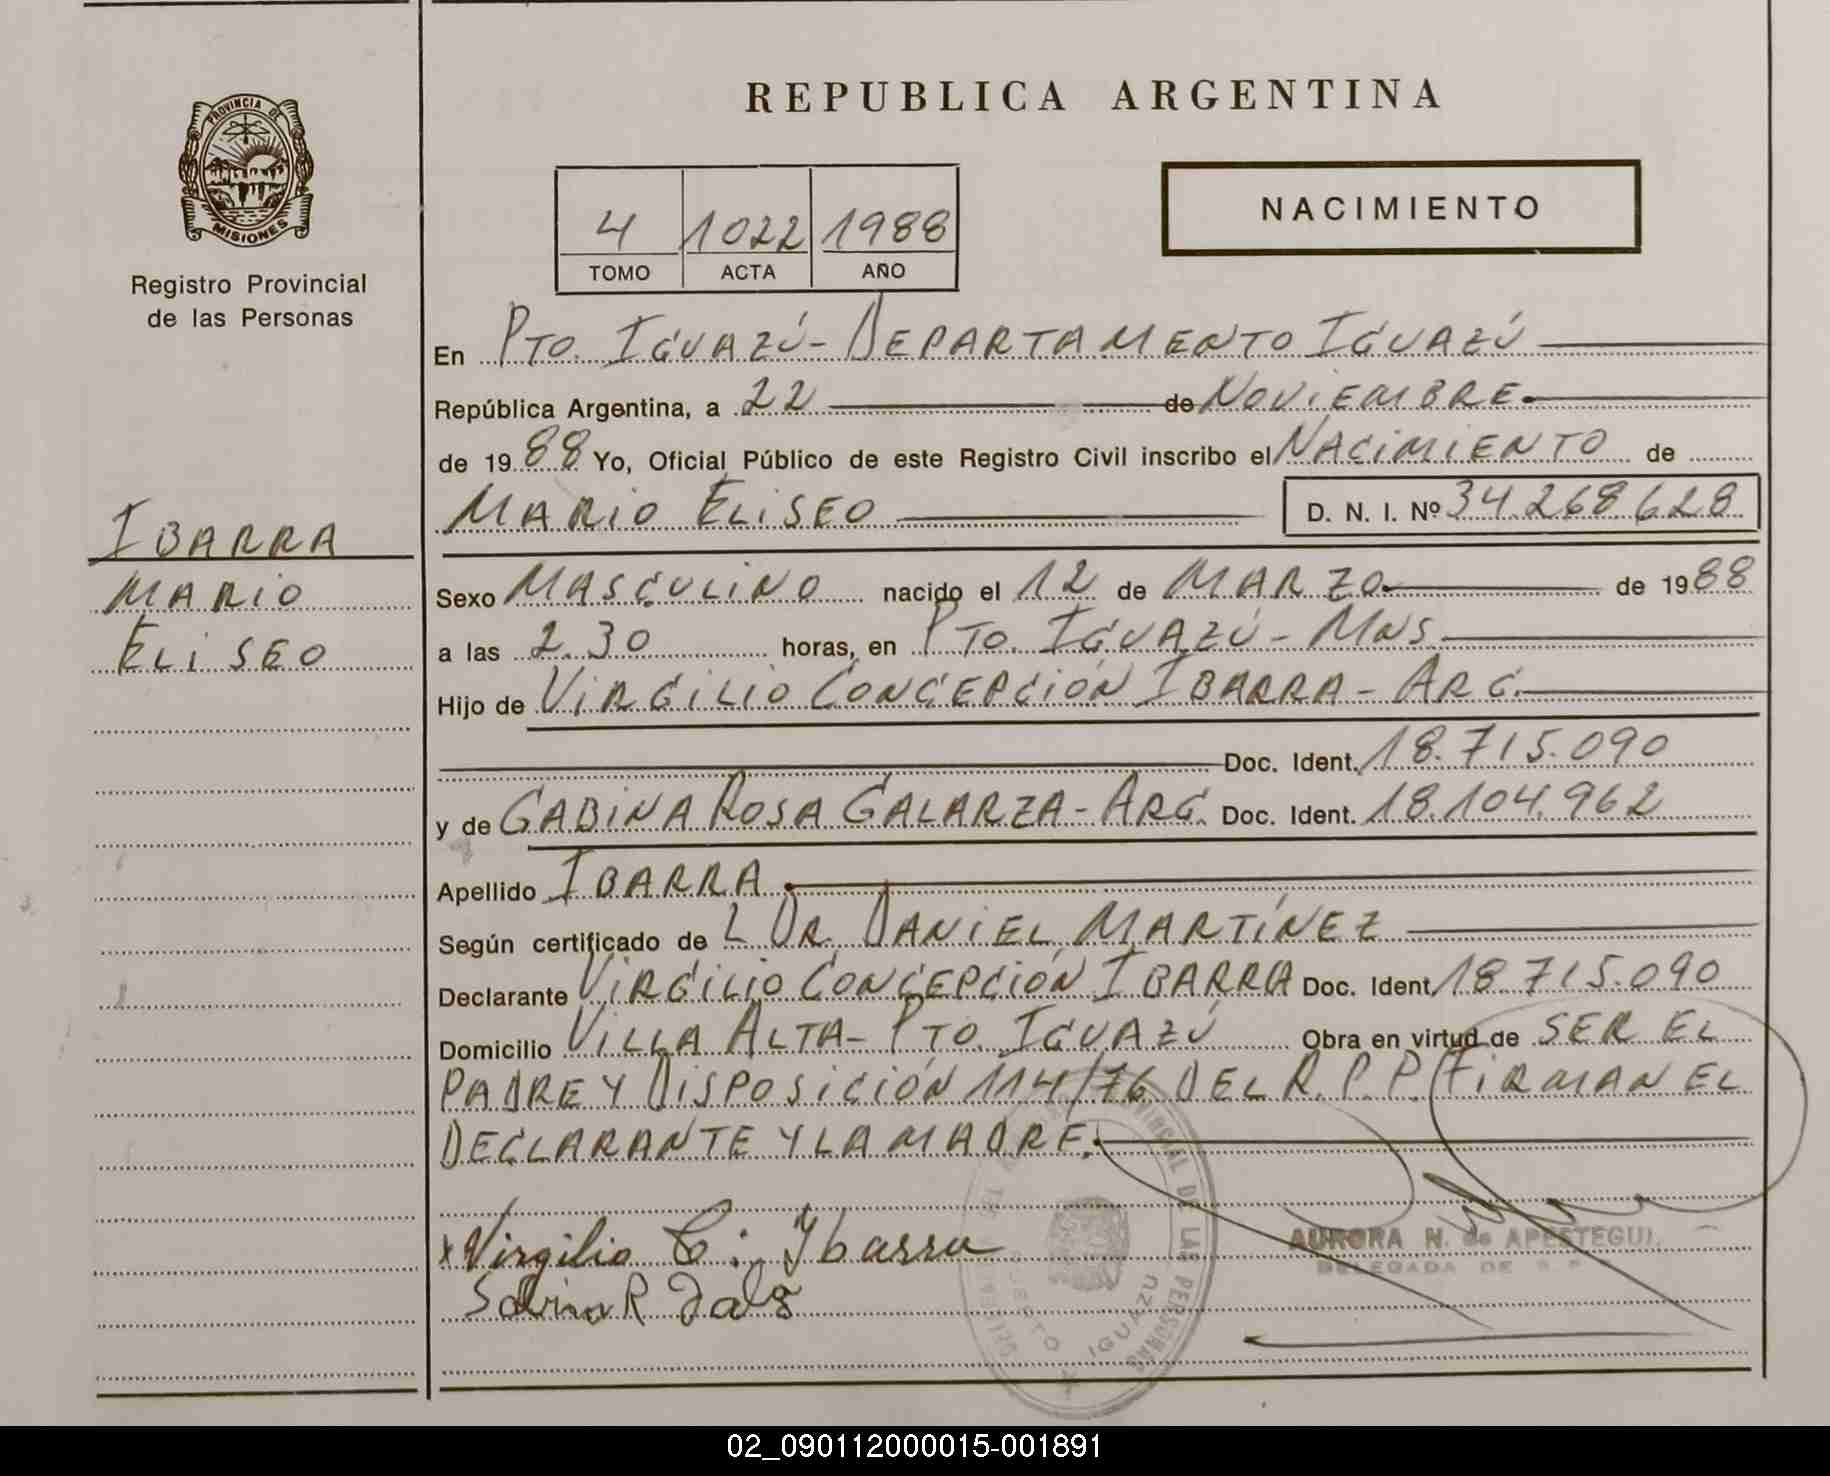 REPUBLICA ARGENTINA
PROVINCIA DE
MISIONES
Registro Provincial
de las Personas
4 1022 1988
TOMO ACTA AÑO
NACIMIENTO
En PTO. IGUAZÚ - DEPARTAMENTO IGUAZÚ
República Argentina, a 22 de NOVIEMBRE.
de 1988 Yo, Oficial Público de este Registro Civil inscribo el NACIMIENTO de
MARIO ELISEO D. N. I. Nº 34.268.628
IBARRA
MARIO
ELISEO
Sexo MASCULINO nacido el 12 de MARZO de 1988
a las 2.30 horas, en PTO. IGUAZÚ - MNS.
Hijo de VIRGILIO CONCEPCIÓN IBARRA - ARG.
Doc. Ident. 18.715.090
y de GABINA ROSA GALARZA - ARG. Doc. Ident. 18.104.962
Apellido IBARRA
Según certificado de L DR. DANIEL MARTÍNEZ
Declarante VIRGILIO CONCEPCIÓN IBARRA Doc. Ident. 18.715.090
Domicilio VILLA ALTA - PTO. IGUAZÚ Obra en virtud de SER EL
PADRE Y DISPOSICIÓN 114/76 DEL R. P. P. FIRMAN EL
DECLARANTE Y LA MADRE.
x Virgilio C. Ybarra
AURORA N. de APESTEGUI
DELEGADA DE
PROVINCIAL DE LAS PERSONAS
PUERTO IGUAZU
02_090112000015-001891